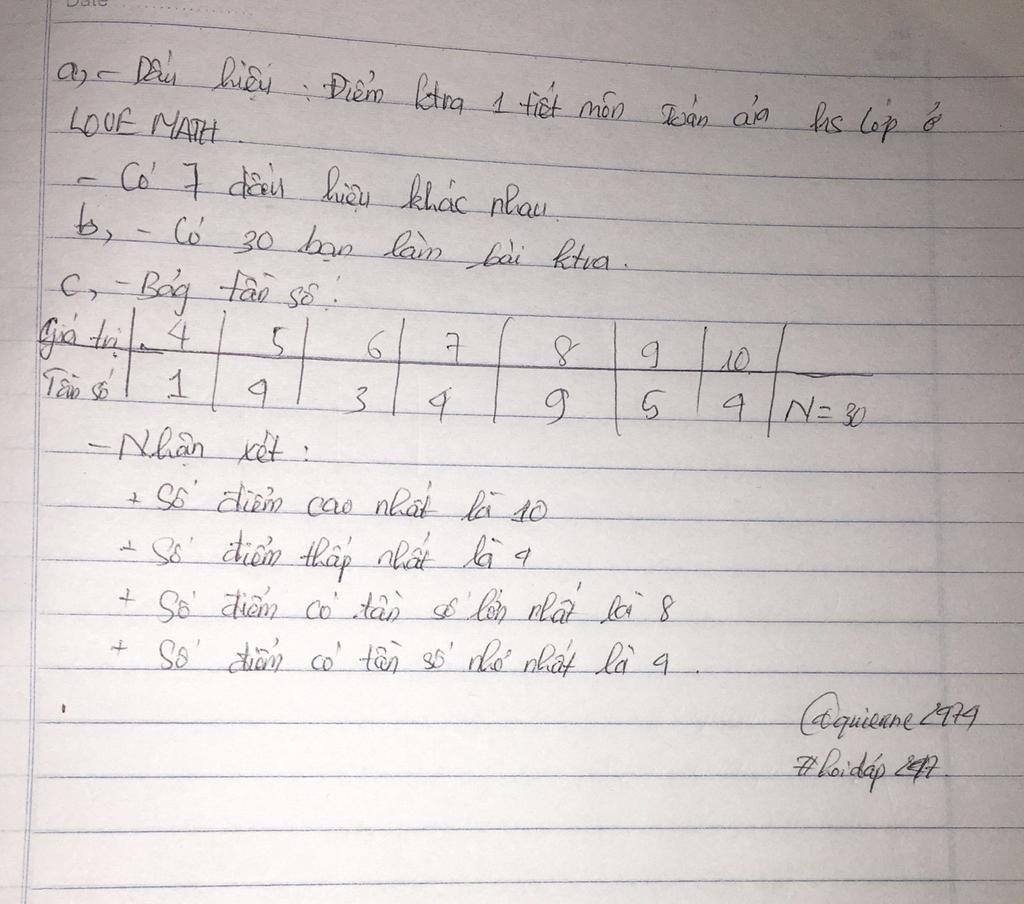 Date
a, - Dấu hiệu : Điểm ktra 1 tiết môn Toán của hs lớp ở
LOVE MATH.
- Có 7 dấu hiệu khác nhau.
b, - Có 30 bạn làm bài ktra.
c, - Bảg tần số :
Giá trị 4 5 6 7 8 9 10
Tần số 1 4 3 4 9 5 4 N = 30
- Nhận xét :
+ Số điểm cao nhất là 10
+ Số điểm thấp nhất là 4
+ Số điểm có tần số lớn nhất là 8
+ Số điểm có tần số nhỏ nhất là 4.
#hoidáp247